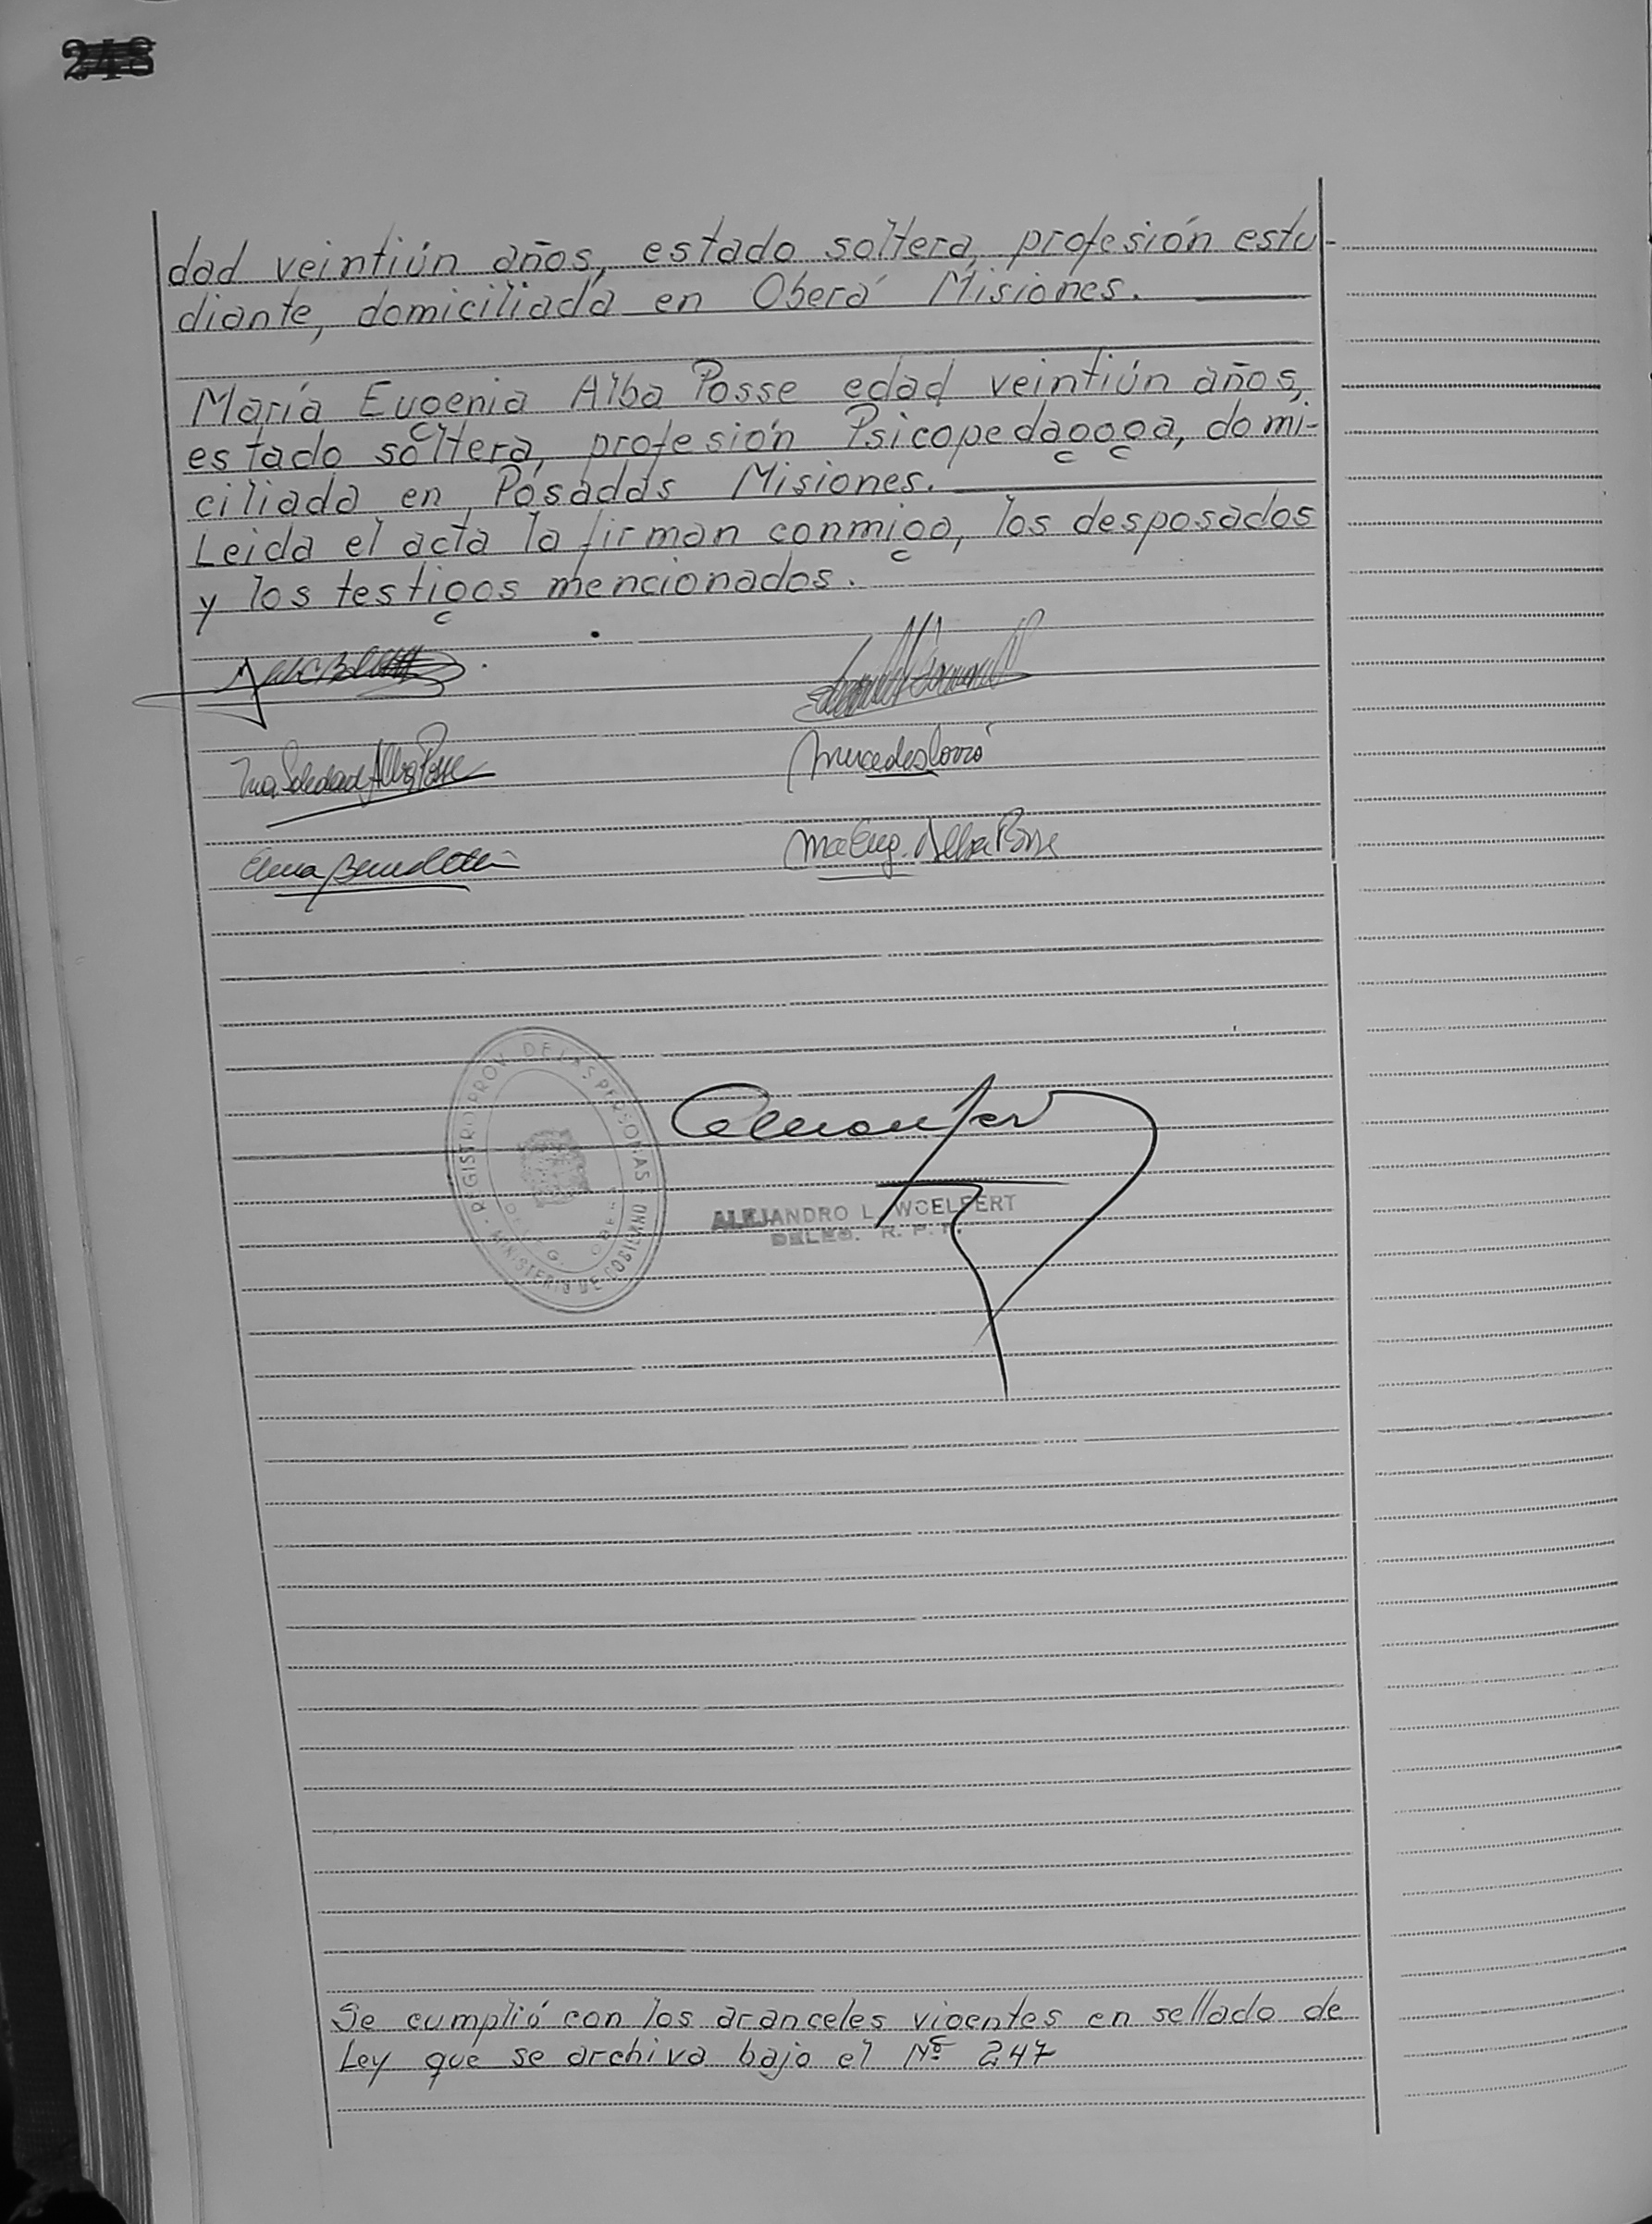 248
dad veintiún años, estado soltera, profesión estu-
diante, domiciliada en Oberá Misiones.
María Eugenia Alba Posse edad veintiún años,
estado soltera, profesión Psicopedagoga, domi-
ciliada en Posadas Misiones.
Leida el acta la firman conmigo, los desposados
y los testigos mencionados.
Ma. Soledad Alba Posse
Mercedes
Ma Eug. Alba Posse
REGISTRO PROV. DE LAS PERSONAS
MINISTERIO DE GOBIERNO
ALEJANDRO L. WOELFERT
DELEG. R. P. P.
Se cumplió con los aranceles vigentes en sellado de
Ley que se archiva bajo el Nº 247